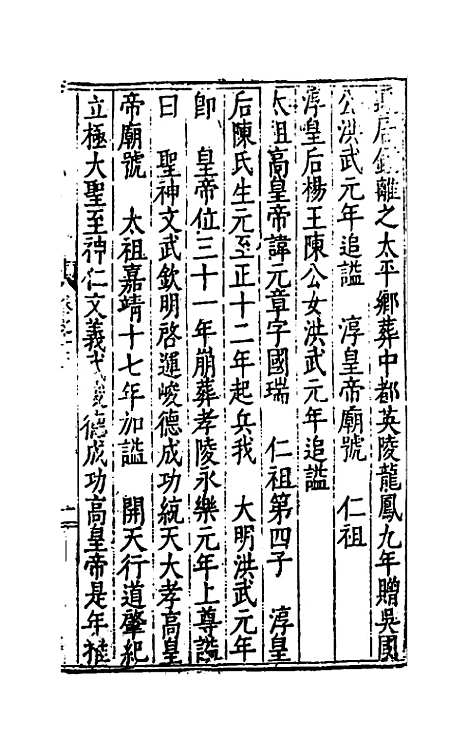 居鍾離之太平鄉葬中都英陵龍鳳九年贈吳國
公洪武元年追謚　淳皇帝廟號　仁祖
淳皇后楊王陳公女洪武元年追謚
太祖高皇帝諱元章字國瑞　仁祖第四子　淳皇
后陳氏生元至正十二年起兵我　大明洪武元年
卽　皇帝位三十一年崩葬孝陵永樂元年上尊謚
曰　聖神文武欽明啓運峻德成功統天大孝高皇
帝廟號　太祖嘉靖十七年加謚　開天行道肇紀
立極大聖至神仁文義武德成功高皇帝是年